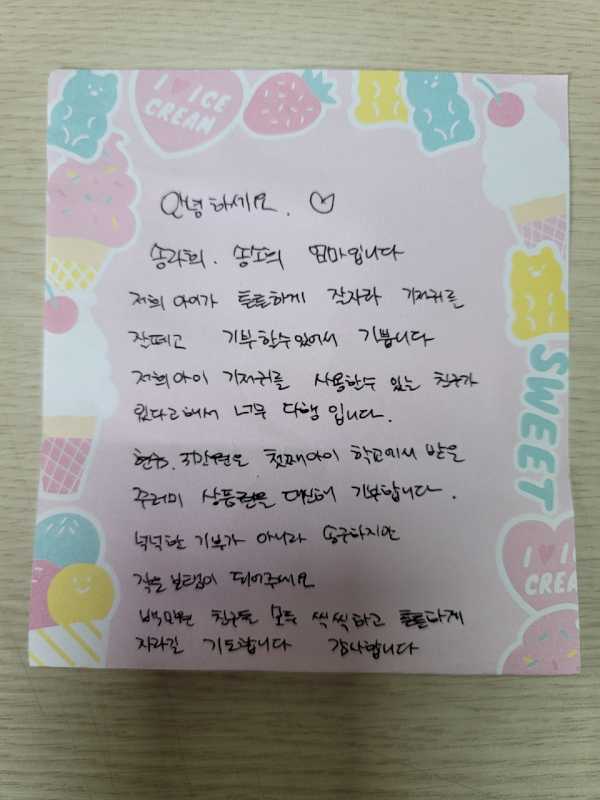 I ♥ ICE
CREAM
안녕하세요. ♡
엄마입니다
저희 아이가 튼튼하게 잘자라 기저귀를
잘떼고 기부할수있어서 기쁩니다
저희아이 기저귀를 사용할수 있는 친구가
있다고해서 너무 다행입니다.
3만원은 첫째아이 학교에서 받은
꾸러미 상품권을 대신해 기부합니다.
넉넉한 기부가 아니라 송구하지만
작은 보탬이 되어주세요
친구들 모두 씩씩하고 튼튼하게
자라길 기도합니다 감사합니다
SWEET
I ♥ IC
CREA